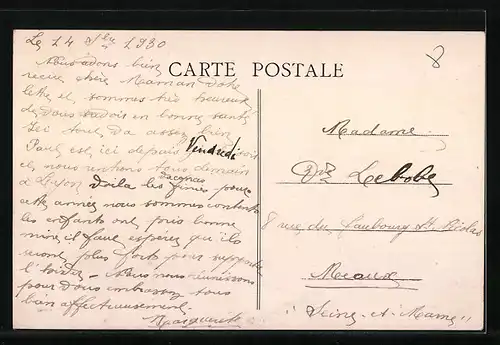 Le 14 7bre 1930
Nous avons bien
reçu chère Maman votre
lettre et sommes très heureux
de vous savoir en bonne santé
Ici tout va assez bien
Paul est ici depuis Vendredi soir
et nous rentrons tous demain
à Lyon Voila les vacances finies pour
cette année nous sommes contents
les enfants ont pris bonne
mine il faut espérer qu'ils
seront plus forts pour supporter
l'hiver - Nous nous réunissons
pour vous embrasser tous
bien affectueusement
Marguerite
CARTE POSTALE
8
Madame
Vve
8 rue du Faubourg St Nicolas
Meaux
"Seine-et-Marne"